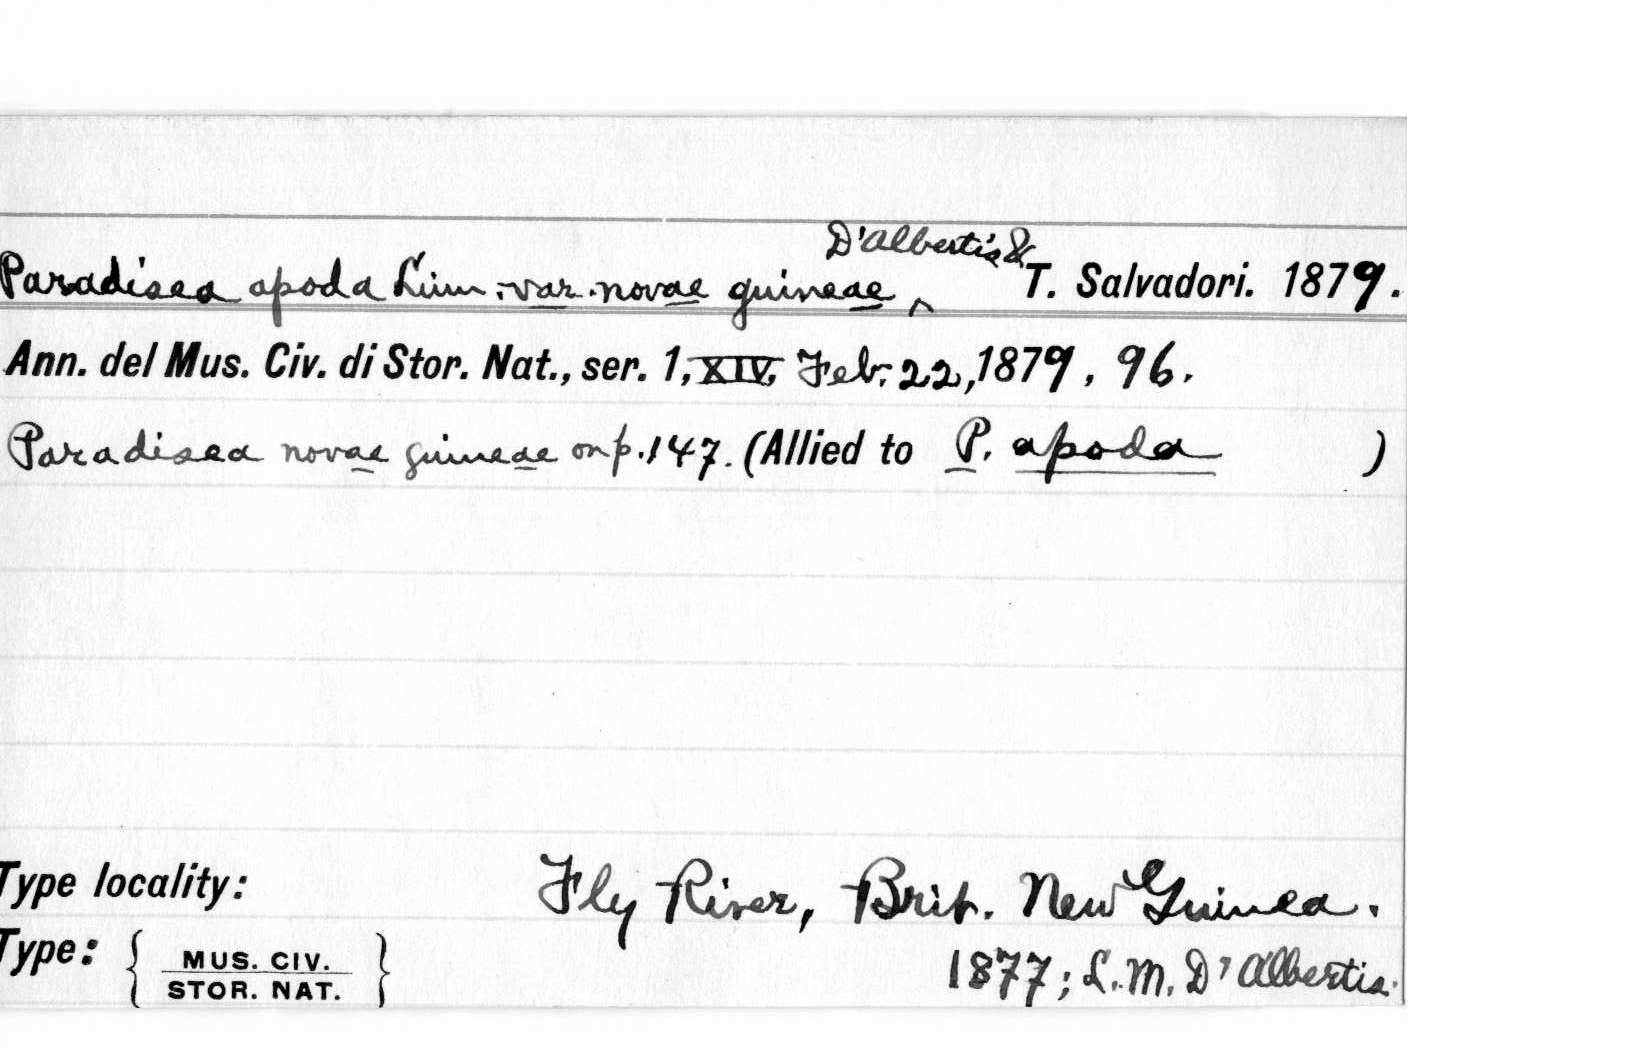 Paradisea apoda Linn. var. novae guineae D'Albertis & T. Salvadori. 1879.
Ann. del Mus. Civ. di Stor. Nat., ser. 1, XIV, Feb. 22, 1879, 96.
Paradisea novae guineae on p. 147. (Allied to P. apoda )
Type locality: Fly River, Brit. New Guinea.
Type: { MUS. CIV. STOR. NAT. } 1877; L. M. D'Albertis.